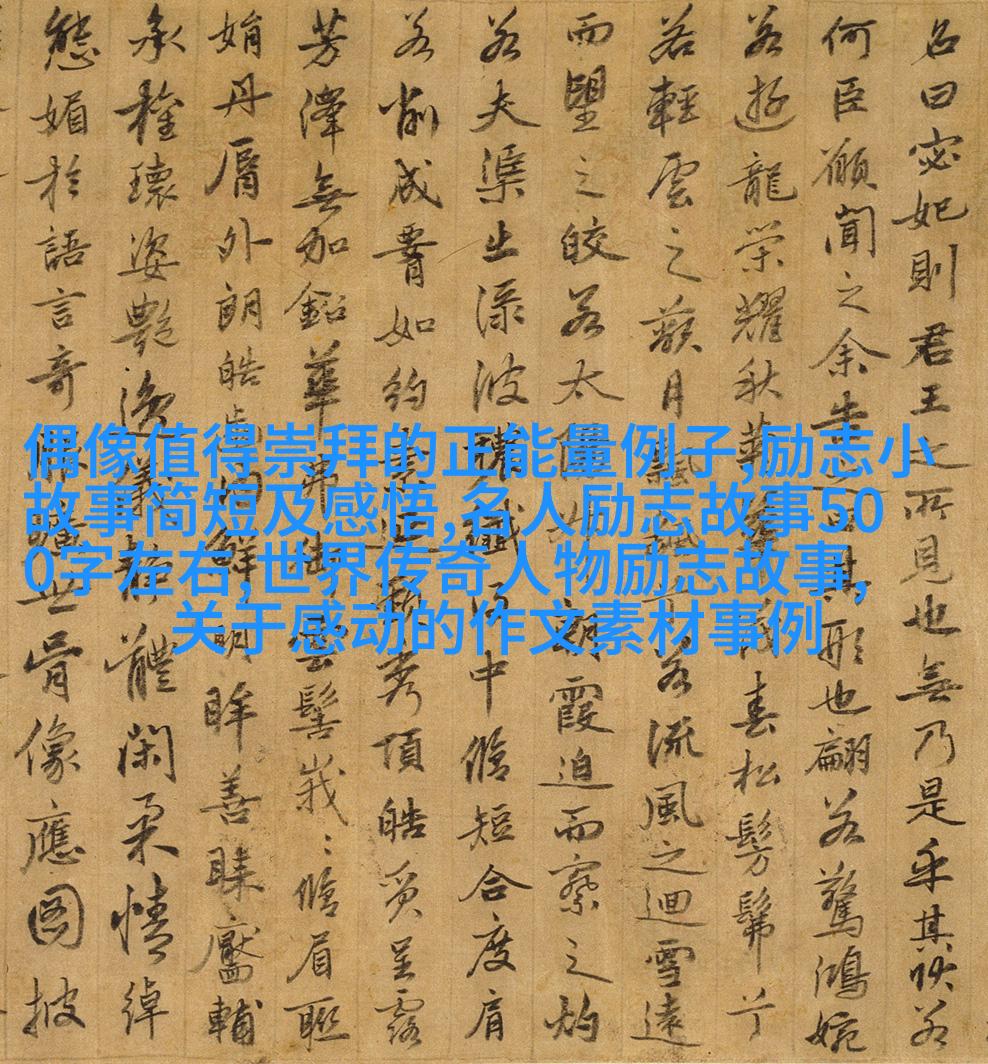 偶像值得崇拜的正能量例子,励志小
故事简短及感悟,名人励志故事50
0字左右,世界传奇人物励志故事,
关于感动的作文素材事例
名曰宓妃則君王之所見也無乃是乎其狀若
何臣願聞之余告之其形也翩若驚鴻婉
若遊龍榮耀秋華茂春松髣髴兮
若輕雲之蔽月飄若流風之迴雪遠
而望之皎若太朝霞迫而察之灼
若夫渠出淥波穠纖得中脩短合度肩
若削成腰如約素延秀項皓質呈露
芳澤無加鉛華弗御雲髻峩〻脩眉聯
娟丹脣外朗皓齒內鮮明眸善睞靨輔
承權瓌姿艷逸儀靜體閑柔情綽
態媚於語言奇服曠世骨像應圖披